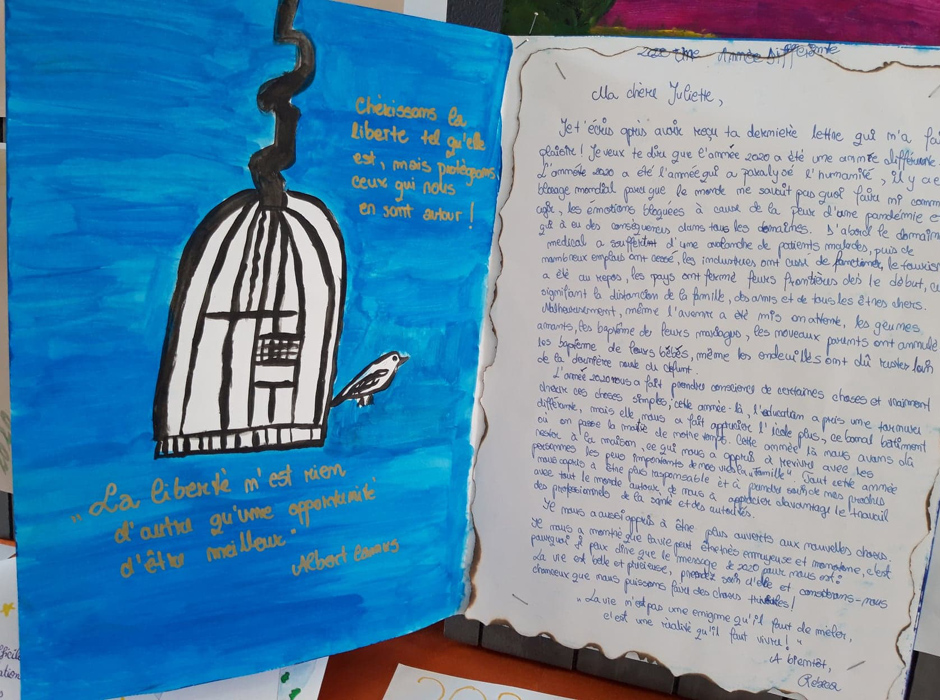 Chérissons la
liberte tel qu'elle
est, mais protégeons
ceux qui nous
en sont autour !
„La liberté n'est rien
d'autre qu'une opportunité
d'être meilleur"
Albert Camus
2020 Une Année Différente
Ma chère Juliette,
Je t'écris après avoir reçu ta dernière lettre qui m'a fai
plaisir! Je veux te dire que l'année 2020 a été une année différente
L'année 2020 a été l'année qui a paralysé l'humanité, il y a e
blocage mondial parce que le monde ne savait pas quoi faire ni comm
agir, les émotions bloquées à cause de la peur d'une pandémie e
qui a eu des conséquences dans tous les domaines. D'abord le domaine
medical a souffert d'une avalanche de patients malades, puis de
nombreux emplois ont cessé, les industries ont cessé de fonctionner, le touris
a été au repos, les pays ont fermé leurs frontières dès le début, ce
signifiant la distanciation de la famille, des amis et de tous les êtres chers.
Malheureusement, même l'avenir a été mis en attente, les jeunes
amants, les baptême de leurs mariages, les nouveaux parents ont annulé
les baptême de leurs bébés, même les endeuillés ont dû rester loin
de la dernière route du défunt.
L'année 2020 nous a fait prendre conscience de certaines choses et vraiment
ces choses simples, cette année-là, l'éducation a pris une tournure
différente, mais elle nous a fait apprécier l'école plus, ce banal bâtiment
où on passe la moitié de notre temps. Cette année là nous avons dû
rester à la maison, ce qui nous a appris à revivre avec les
personnes les plus importantes de nos vies la „famille". Tout cette année
nous appris à être plus responsable et à prendre soin de nos proches
avec tout le monde autour, de nous a apprécier davantage le travail
des professionnels de la santé et des autorités.
Je nous a aussi appris à être plus ouverts aux nouvelles choses,
Je nous a montré que la vie peut être très ennuyeuse et monotone, c'est
pourquoi je peux dire que le message de 2020 pour nous est:
La vie est belle et précieuse, prendez soin d'elle et considérons-nous
chanceux que nous puissons faire des choses triviales!
„La vie n'est pas une enigme qu'il faut de mêler,
c'est une réalité qu'il faut vivre!"
A bientôt,